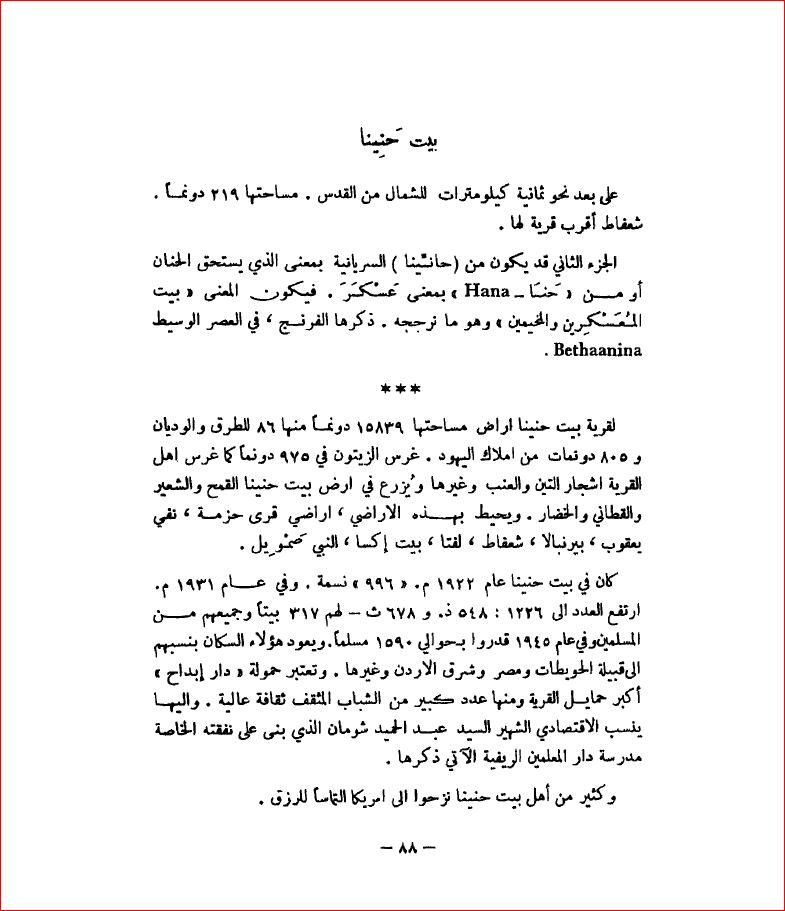 بيت حَنِينا
على بعد نحو ثمانية كيلومترات للشمال من القدس . مساحتها ٢١٩ دونمـاً .
شعفاط أقرب قرية لها .
الجزء الثاني قد يكون من ( حانـّينا ) السريانية بمعنى الذي يستحق الحنان
أو مــن « حَنـَا ــ Hana » بمعنى عَسْكـَرَ . فيكون المعنى « بيت
المُعَسْكِرين والمخيمين » وهو ما نرجحه . ذكرها الفرنـج ، في العصر الوسيط
Bethaanina .
* * *
لقرية بيت حنينا اراض مساحتها ١٥٨٣٩ دونمـاً منها ٨٦ للطرق والوديان
و ٨٠٥ دونمات من املاك اليهود . غرس الزيتون في ٩٧٥ دونماً كما غرس اهل
القرية اشجار التين والعنب وغيرها ويُزرع في ارض بيت حنينا القمح والشعير
والقطاني والخضار . ويحيط بهـــذه الاراضي ، اراضي قرى حزمـة ، نقي
يعقوب ، بيرنبالا ، شعفاط ، لفتا ، بيت إكسا ، النبي صَمْوِيل .
كان في بيت حنينا عام ١٩٢٢ م. « ٩٩٦ » نسمة . وفي عـــام ١٩٣١ م.
ارتفع العدد الى ١٢٢٦ : ٥٤٨ ذ. و ٦٧٨ ث – لهم ٣١٧ بيتاً وجميعهم مـــن
المسلمين وفي عام ١٩٤٥ قدروا بـحوالي ١٥٩٠ مسلماً. ويعود هؤلاء السكان بنسبهم
الى قبيلة الحويطات ومصر وشرق الاردن وغيرها . وتعتبر حمولة « دار إبداح »
أكبر حمايــل القرية ومنها عدد كبير من الشباب المثقف ثقافة عالية . واليهــا
ينسب الاقتصادي الشهير السيد عبـد الحميد شومان الذي بنى على نفقته الخاصة
مدرسة دار المعلمين الريفية الآتي ذكرها .
وكثير من أهل بيت حنينا نزحوا الى امريكا التماساً للرزق .
– ٨٨ –